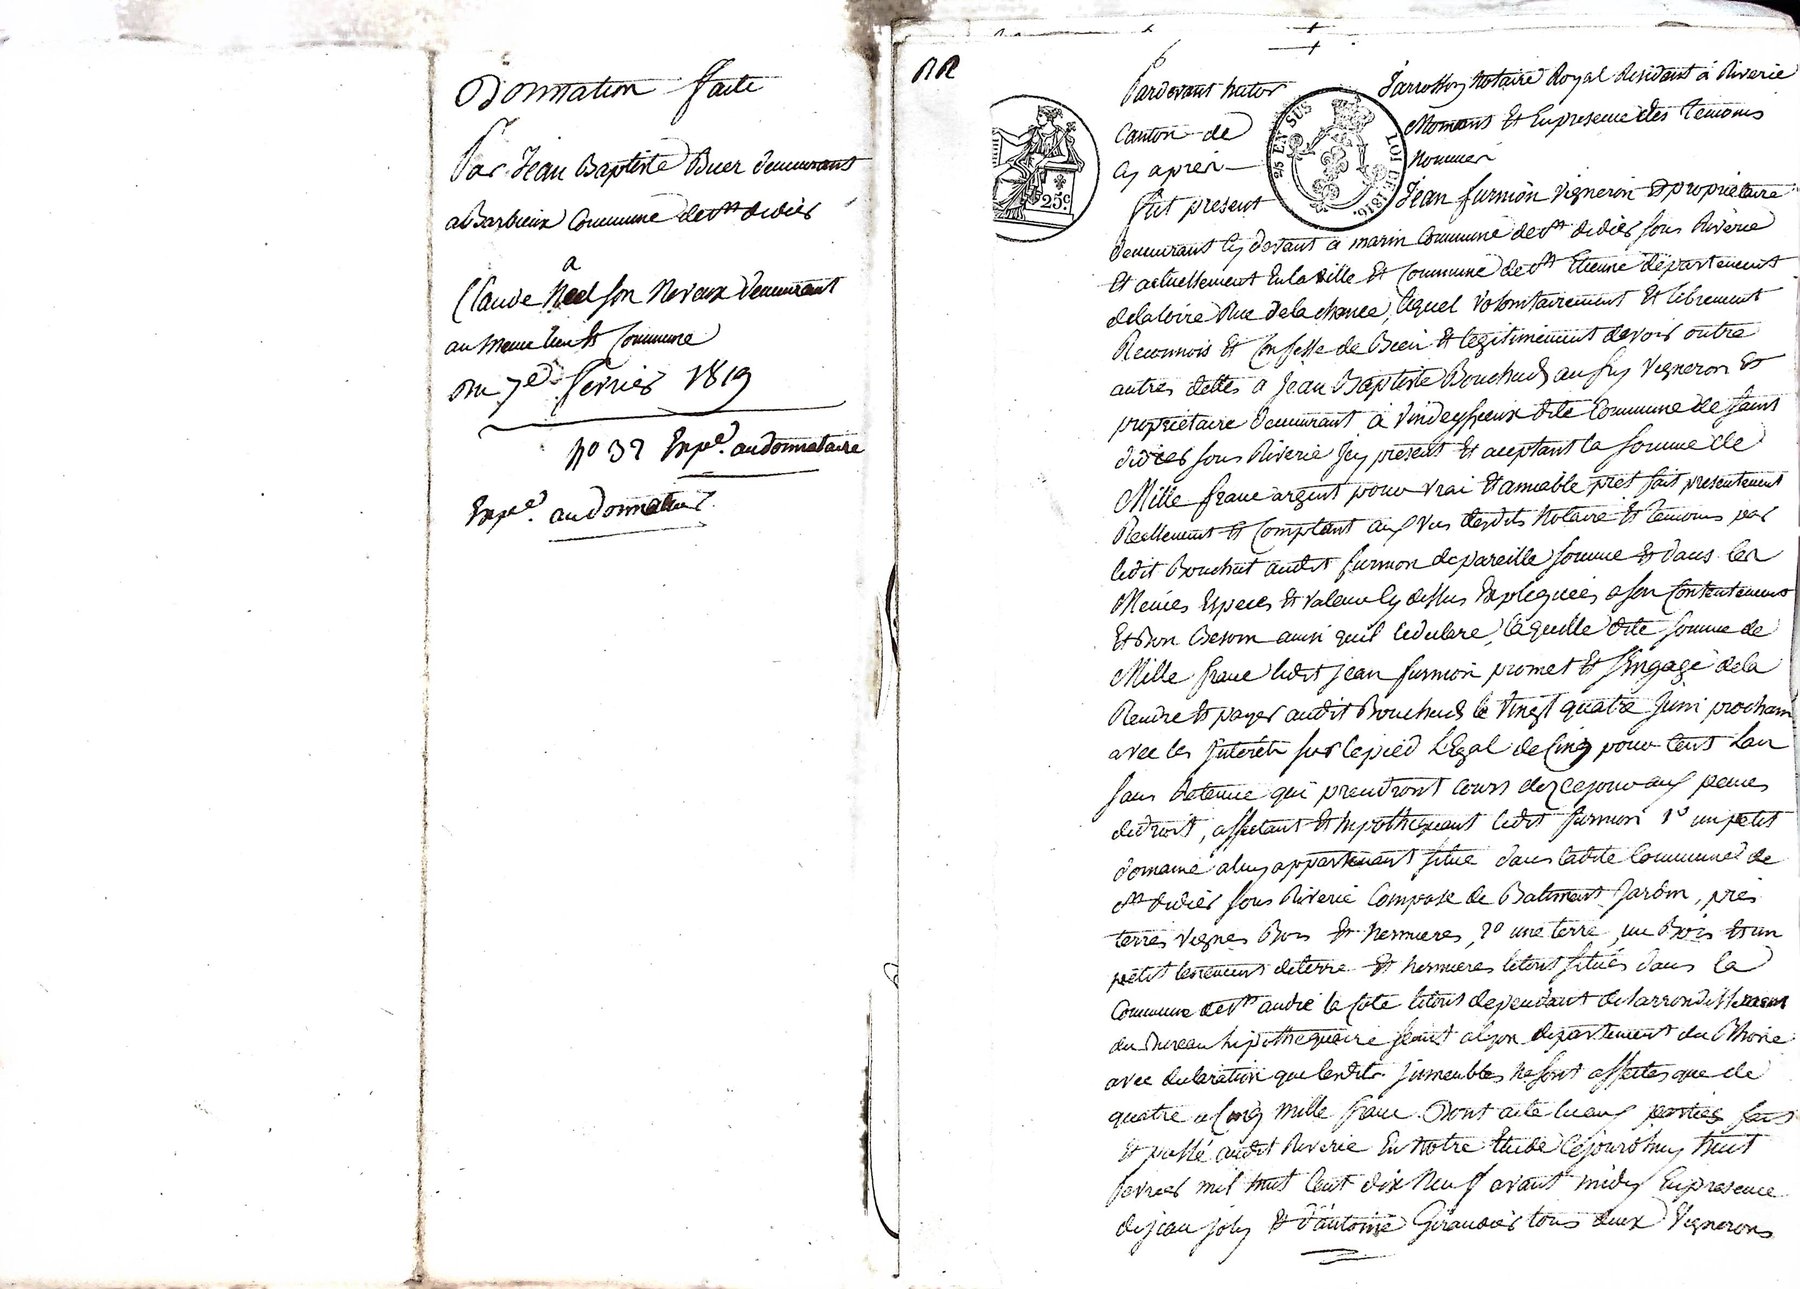 Donnation faite
Par Jean Baptiste Buer demeurant
a Barbieux Commune de St didier
a
Claude Neel son Neveux demeurant
au meme lieu et Commune
Du 7e fevrier 1819
No 32 Expe. au donnataire
Expe. au donnateur
RR
Pardevant notre farrossoy Notaire Royal Residant à Riverie
Canton de Mornant et En presence des temoins
Cy aprés Nommés
fut present Jean furnion vigneron et proprietaire
demeurant Cy devant a marin Commune de St didier sous Riverie
et actuellement En la ville et Commune de St Etienne département
de la loire Rue de la chance, lequel volontairement et librement
Reconnois et Confesse de Bien et legitimement devoir outre
autres dettes a Jean Baptiste Bouchud aussy vigneron et
proprietaire demeurant à vindeyssieux dite Commune de saint
didier sous Riverie Jcy present et aceptant la somme de
Mille franc argent pour vrai et amiable prêt fait presentement
Réellement et Comptant aux vus desdits Notaire et temoins par
ledit Bouchut audit furnion de pareille somme et dans les
Memes especes et valeur Cy dessus Expliquées a son Contentement
et Bon Besoin ainsi quil le declare, laquelle dite somme de
Mille franc ledit jean furnion promet et s'Engage de la
Rendre et payer audit Bouchud le vingt quatre Juin prochain
avec les Jnterêts sur le pied Legal de Cinq pour Cent L'an
sans Retenue qui prendront Cours dez cejour aux peines
de droit, affectant et hipothequant ledit furnion 1o un petit
domaine a luy appartenant situé dans ladite Commune de
St didier sous Riverie Composé de Batiment Jardin, prés
terres vignes Bois et hermieres, 2o une terre, un Bois et un
petit tenement de terre et hermieres letout situés dans la
Commune de St andré la Cote letout dependant de larrondissement
du Bureau hipothequaire séant a lyon departement du Rhone
avec declaration que lesdits jmmeubles ne sont affectés que de
quatre a Cinq mille franc Dont acte lu aux parties fait
et passé audit Riverie En notre Etude Cejourdhuy huit
fevrier mil huit Cent dix Neuf avant midy En presence
de jean joly et d'antoine Giraudier tous deux vignerons
25 EN SUS
LOI DE 1816.
25c.